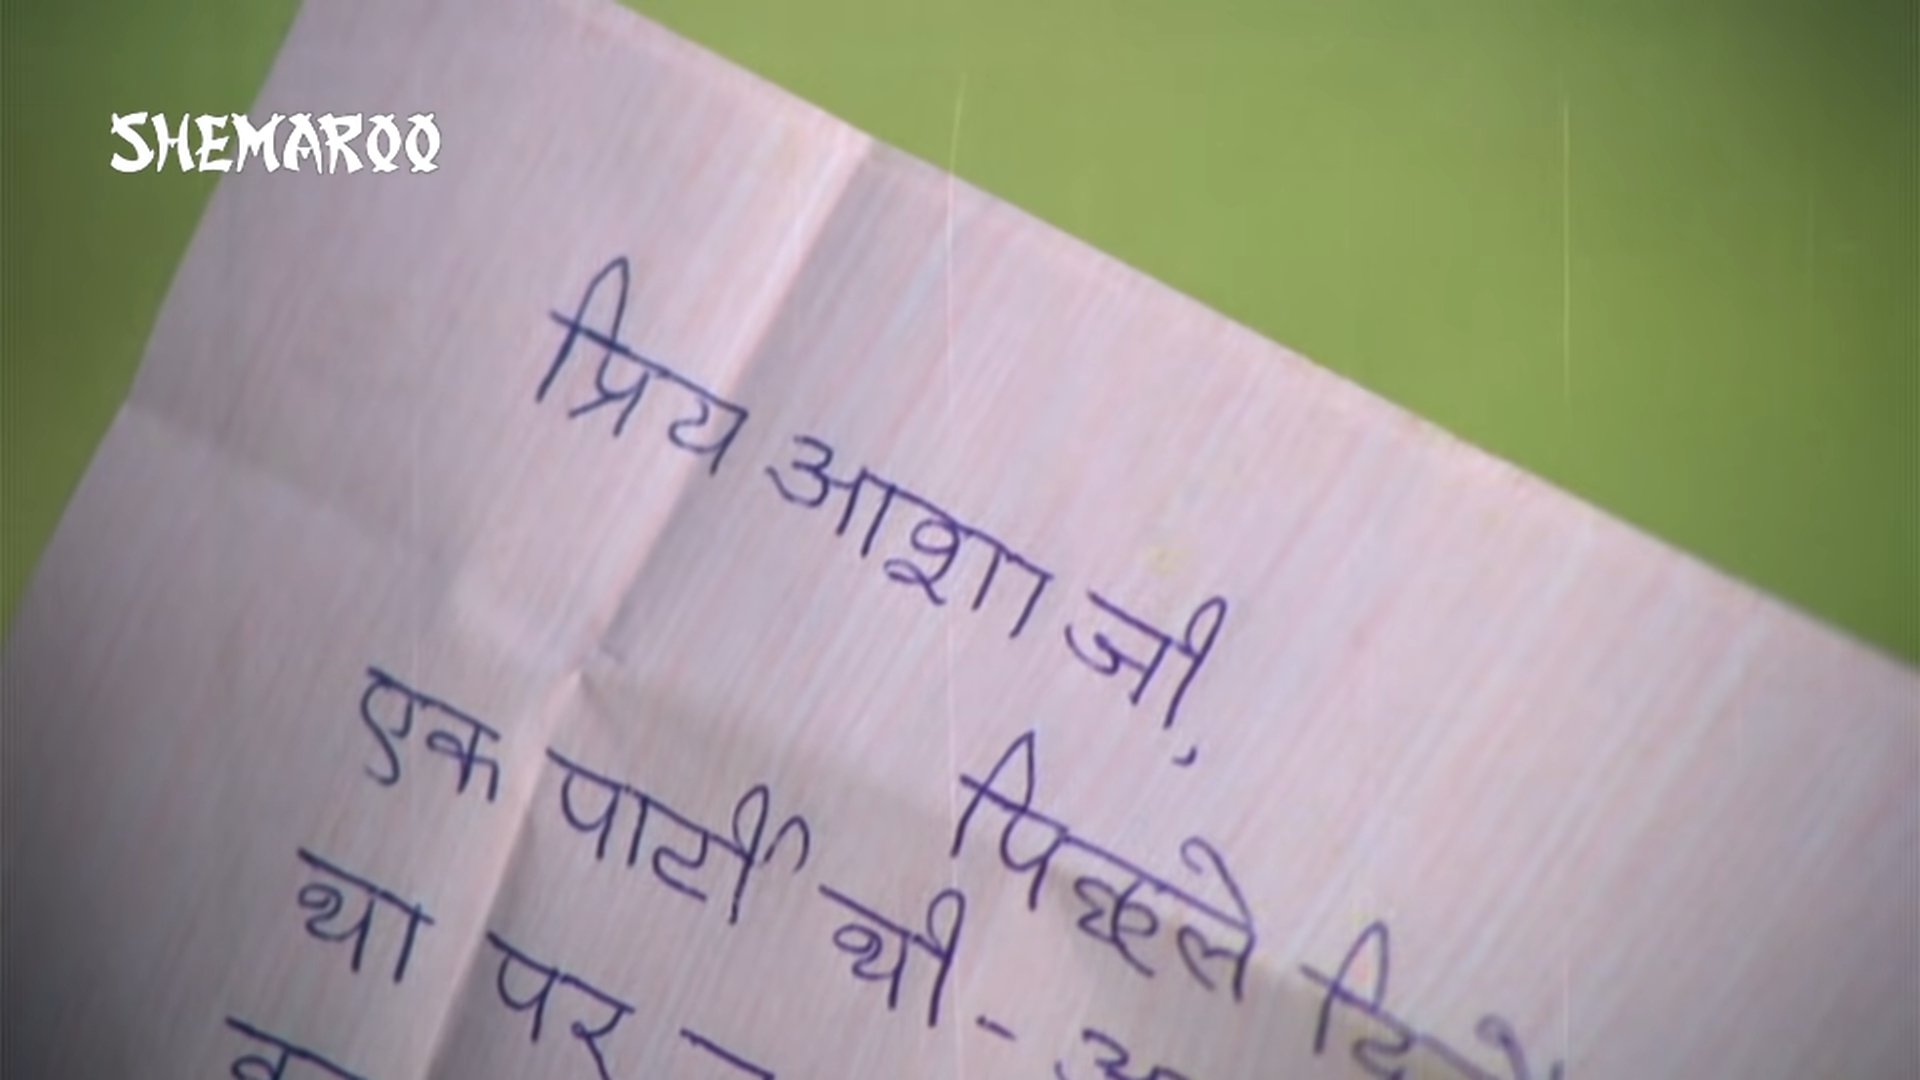 SHEMAROO
प्रिय आशा जी,
पिछले दिनों
एक पार्टी थी -
था पर